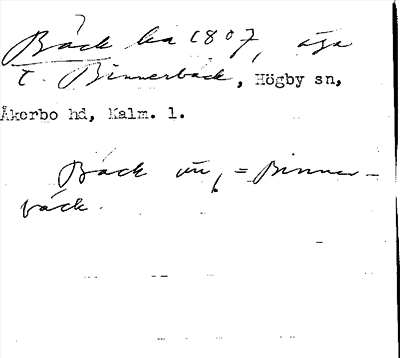 ?
Bäck ha 1807, äga
t. Binnerbäck, Högby sn,
Åkerbo hd, Kalm. l.
Bäck = Binner-
bäck.